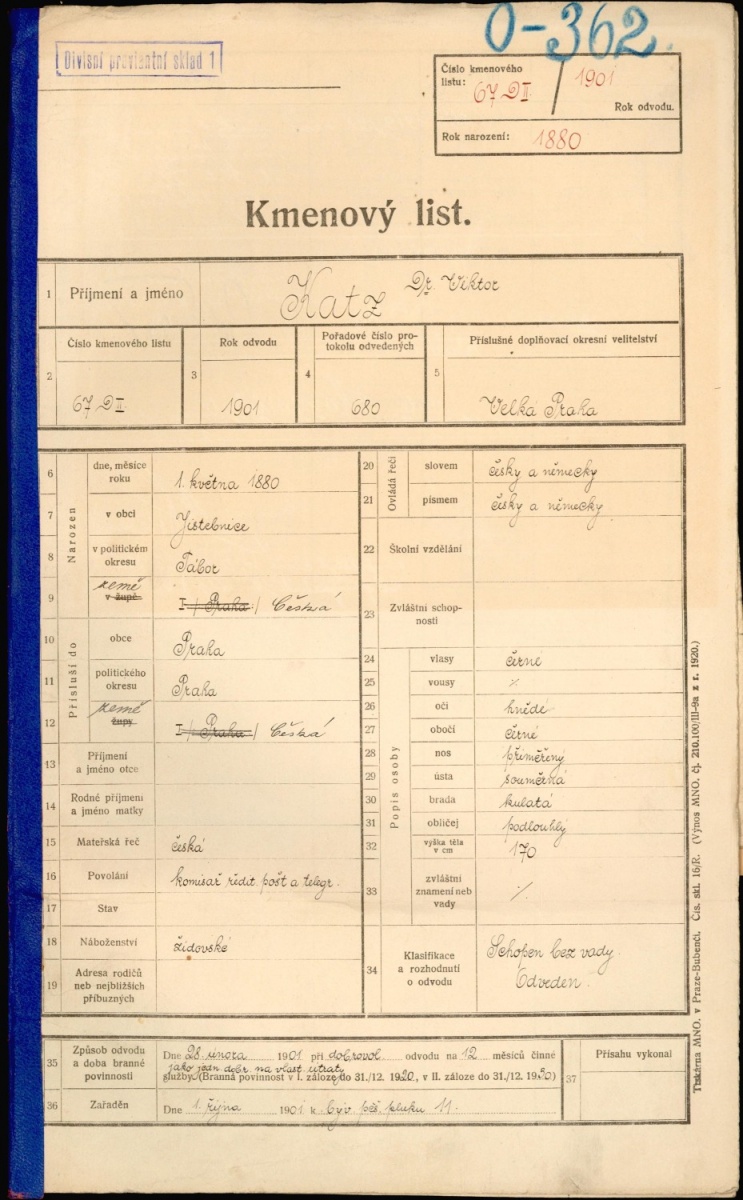 O-362.
Divisní proviantní sklad 1
Číslo kmenového
listu: 67 D II / 1901
Rok odvodu.
Rok narození: 1880
Kmenový list.
1 Příjmení a jméno Katz Dr. Viktor
2 Číslo kmenového listu 67 D II
3 Rok odvodu 1901
4 Pořadové číslo pro-
tokolu odvedených 680
5 Příslušné doplňovací okresní velitelství Velká Praha
Narozen
6 dne, měsíce
roku 1. května 1880
7 v obci Jistebnice
8 v politickém
okresu Tábor
9 země
v župě I / Praha / Česká
Přísluší do
10 obce Praha
11 politického
okresu Praha
12 země
župy I / Praha / Česká
13 Příjmení
a jméno otce
14 Rodné příjmení
a jméno matky
15 Mateřská řeč česká
16 Povolání komisař ředit. pošt a telegr.
17 Stav
18 Náboženství židovské
19 Adresa rodičů
neb nejbližších
příbuzných
Ovládá řeči
20 slovem česky a německy
21 písmem česky a německy
22 Školní vzdělání
23 Zvláštní schop-
nosti
Popis osoby
24 vlasy černé
25 vousy %
26 oči hnědé
27 obočí černé
28 nos přiměřený
29 ústa souměrná
30 brada kulatá
31 obličej podlouhlý
32 výška těla
v cm 170
33 zvláštní
znamení neb
vady %
34 Klasifikace
a rozhodnutí
o odvodu Schopen bez vady.
Odveden.
35 Způsob odvodu
a doba branné
povinnosti
Dne 28. února 1901 při dobrovol. odvodu na 12 měsíců činné
jako jedn. dobr. na vlast. útraty
služby (Branná povinnost v I. záloze do 31./12. 1920, v II. záloze do 31./12. 1930)
36 Zařaděn Dne 1. října 1901 k býv. pěš. pluku 11.
37 Přísahu vykonal
Tiskárna MNO. v Praze-Bubenči. Čís. skl. 16/R. (Výnos MNO. čj. 210.100/III-9a z r. 1920.)